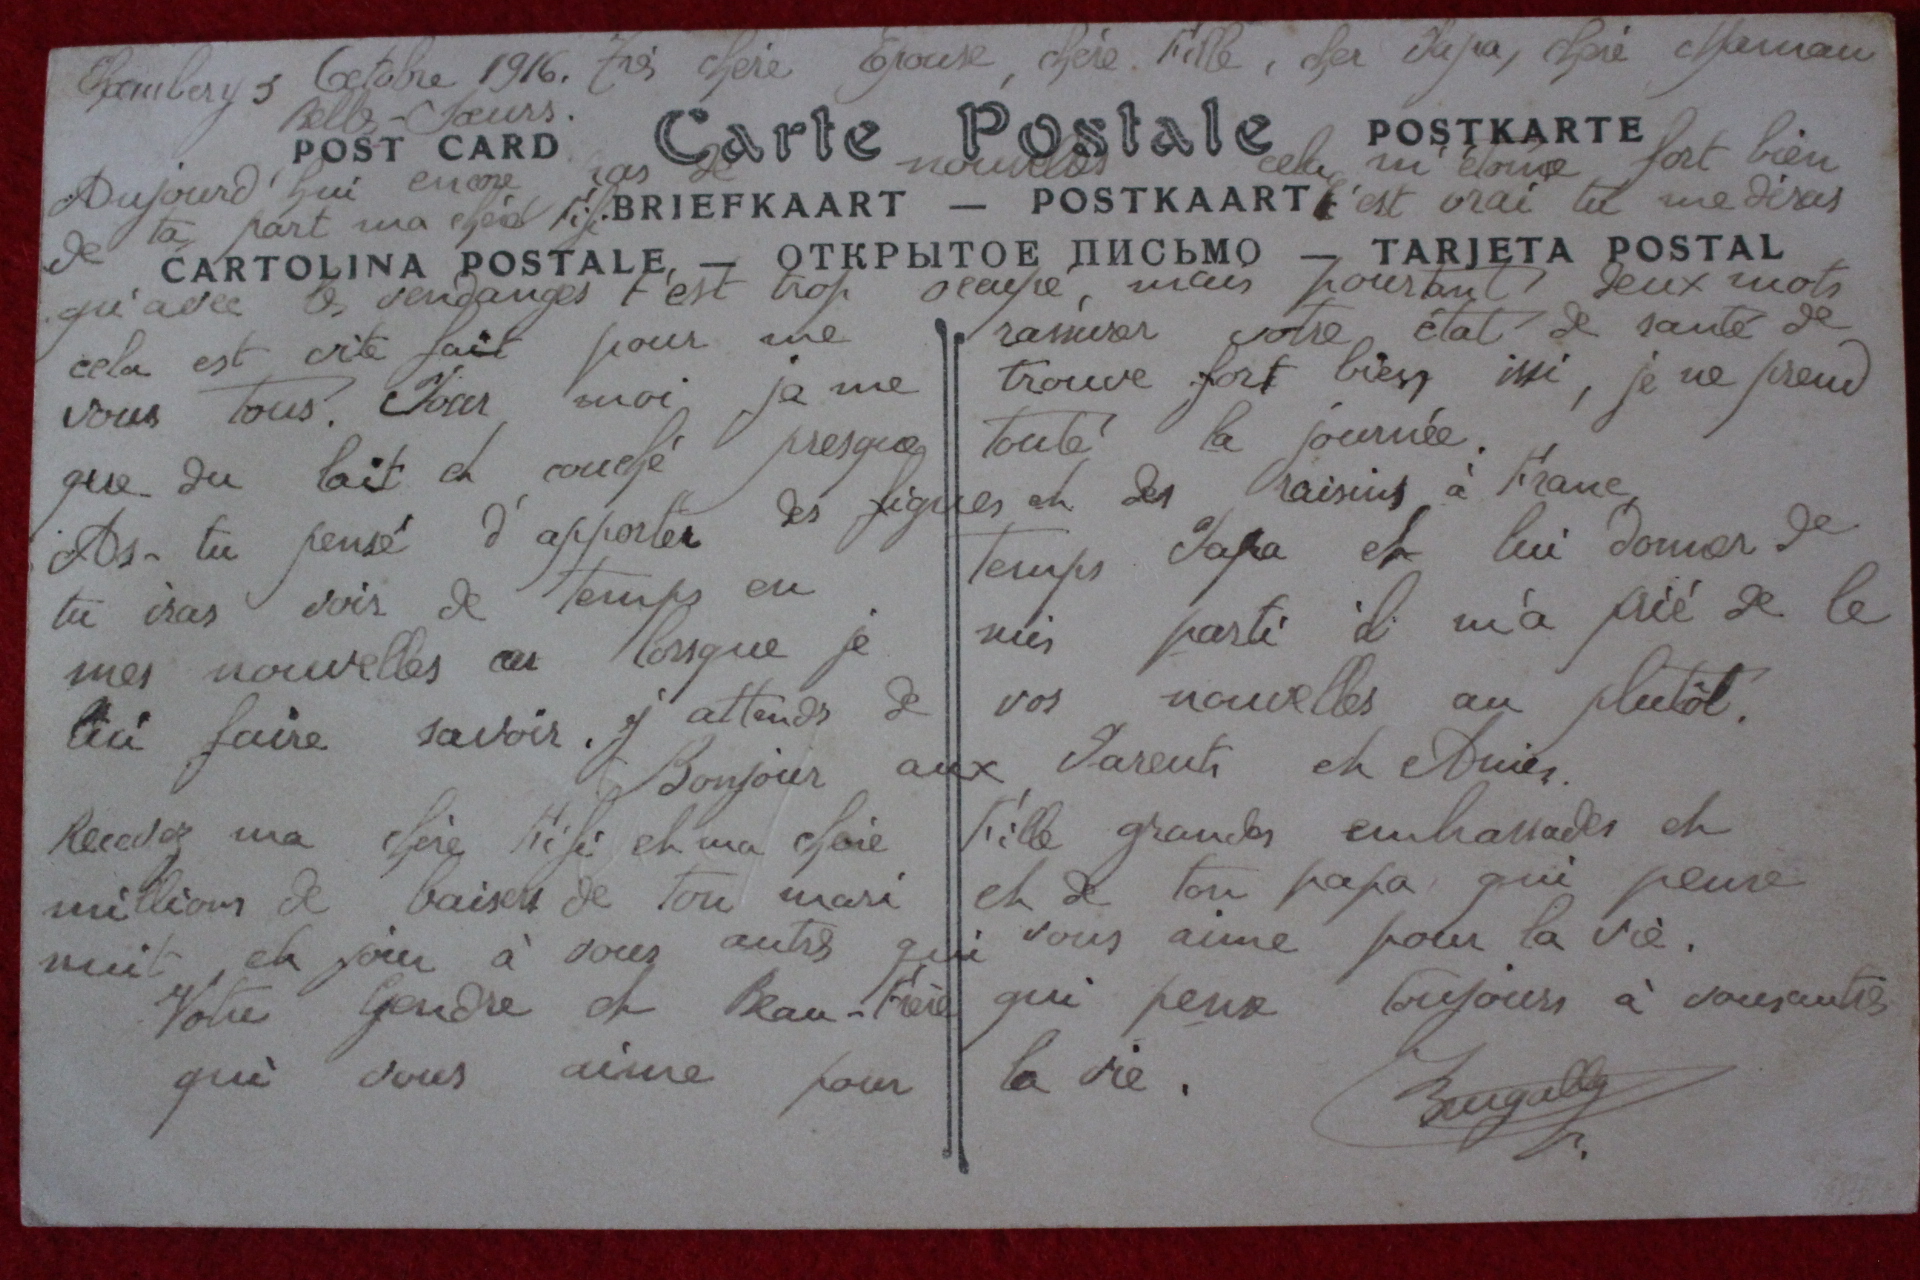 Chambery 5 Octobre 1916. Très chère Epouse, chère Fille, cher Papa, chère Maman
Belles-Sœurs.
POST CARD Carte Postale POSTKARTE
Aujourd'hui encore pas de nouvelles cela m'étonne fort bien
BRIEFKAART — POSTKAART
de ta part ma chère Fifi. C'est vrai tu me diras
CARTOLINA POSTALE — ОТКРЫТОЕ ПИСЬМО — TARJETA POSTAL
qu'avec les vendanges t'est trop occupé, mais pourtant deux mots
cela est vite fait pour me rassurer votre état de santé de
vous tous. Pour moi je me trouve fort bien issi, je ne prend
que du lait et couché presque toute la journée.
As-tu pensé d'apporter des figues et des raisins à Franc
tu iras voir de temps en temps Papa et lui donner de
mes nouvelles car lorsque je suis parti il m'a prié de le
lui faire savoir. J'attends de vos nouvelles au plutôt.
Bonjour aux Parents et Amis.
Recevez ma chère Fifi et ma chère Fille grandes embrassades et
millions de baisers de ton mari et de ton papa qui pense
nuit et jour à vous autres qui vous aime pour la vie.
Votre Gendre et Beau-Frère qui pense toujours à vous autres
qui vous aime pour la vie.